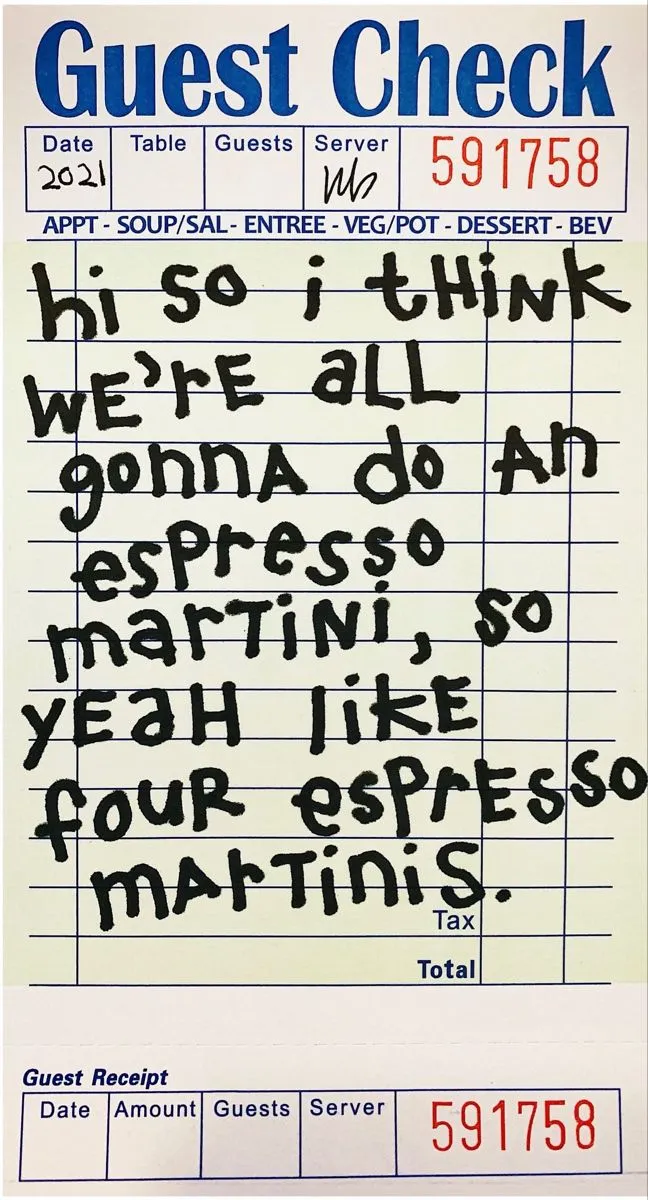 Guest Check
Date Table Guests Server 591758
2021
APPT - SOUP/SAL - ENTREE - VEG/POT - DESSERT - BEV
hi so i tHiNK
WE'rE aLL
gonnA do An
espresso
marTiNi, so
YEaH likE
fouR esPrEsso
mArTiniS.
Tax
Total
Guest Receipt
Date Amount Guests Server 591758